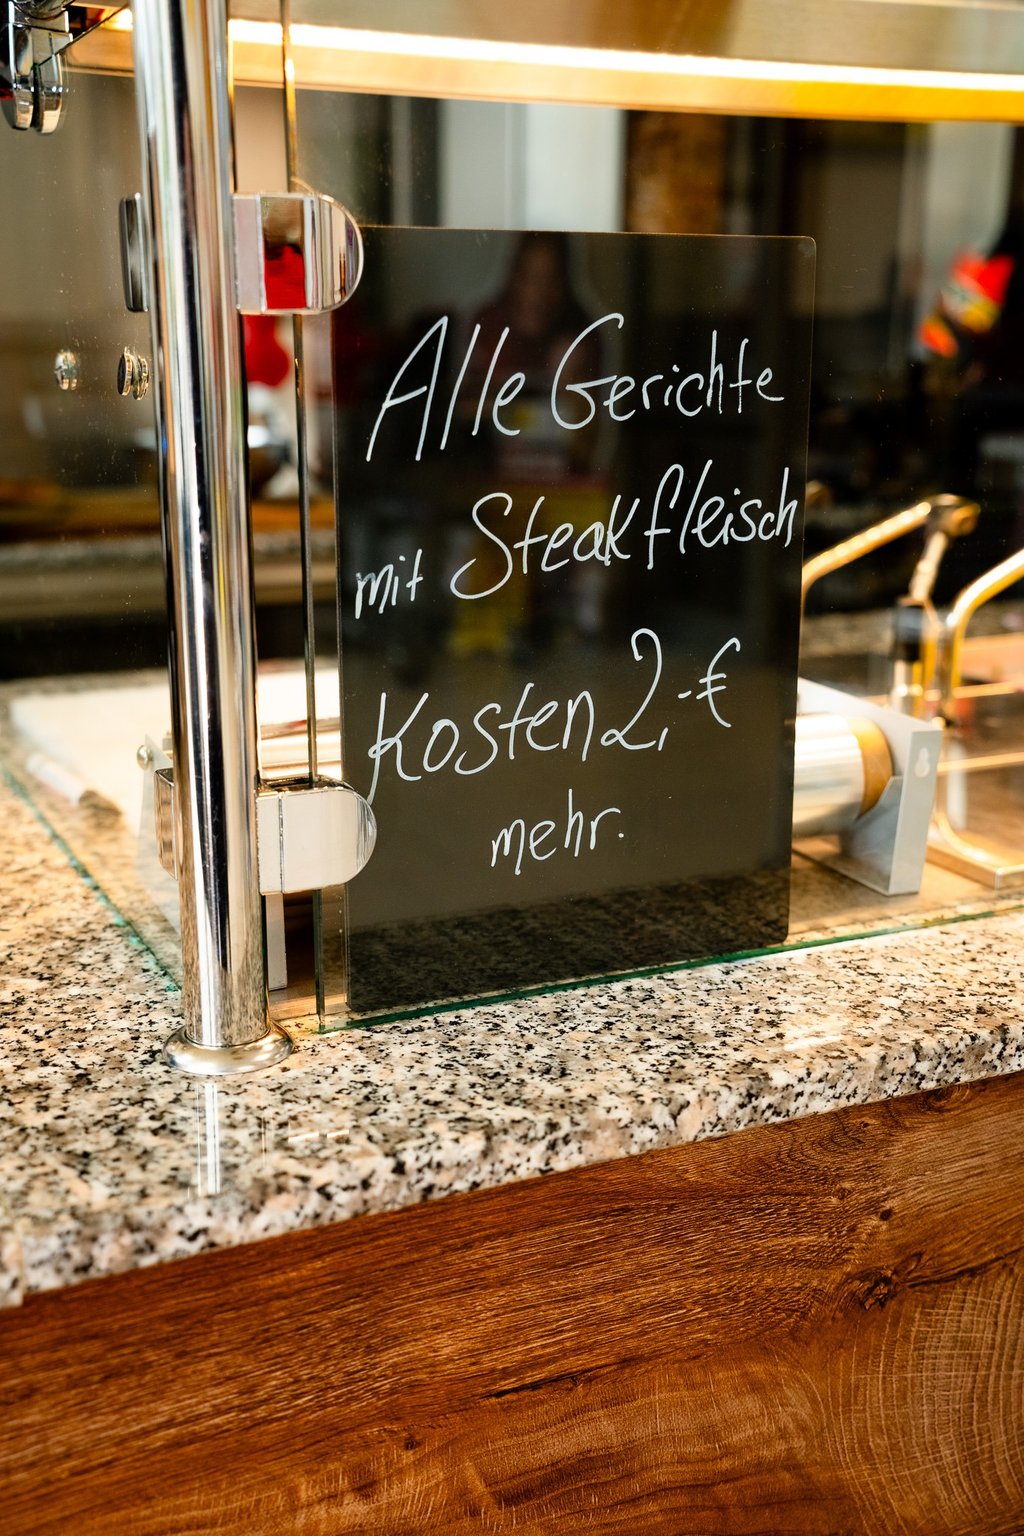 Alle Gerichte
mit Steakfleisch
Kosten 2,-€
mehr.